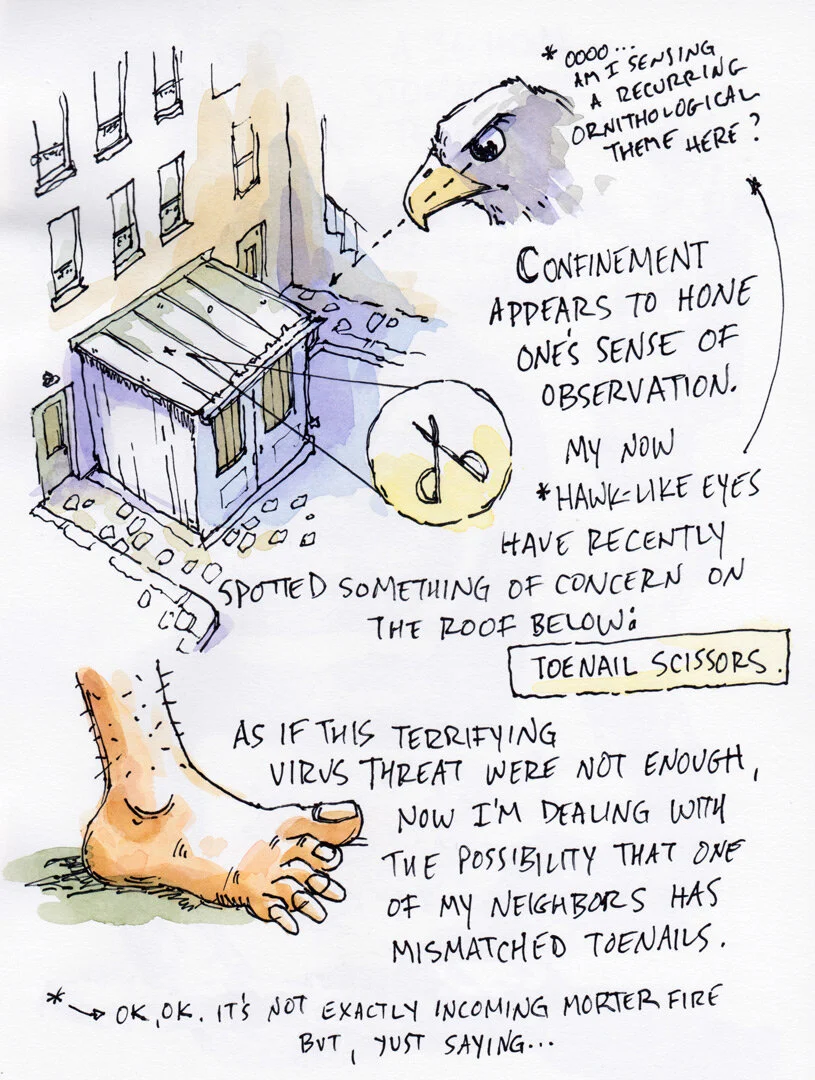 * OOOO...
AM I SENSING
A RECURRING
ORNITHOLOGICAL
THEME HERE?
*
CONFINEMENT
APPEARS TO HONE
ONE'S SENSE OF
OBSERVATION.
MY NOW
* HAWK-LIKE EYES
HAVE RECENTLY
SPOTTED SOMETHING OF CONCERN ON
THE ROOF BELOW:
TOENAIL SCISSORS.
AS IF THIS TERRIFYING
VIRUS THREAT WERE NOT ENOUGH,
NOW I'M DEALING WITH
THE POSSIBILITY THAT ONE
OF MY NEIGHBORS HAS
MISMATCHED TOENAILS.
* → OK, OK. IT'S NOT EXACTLY INCOMING MORTER FIRE
BUT, JUST SAYING...